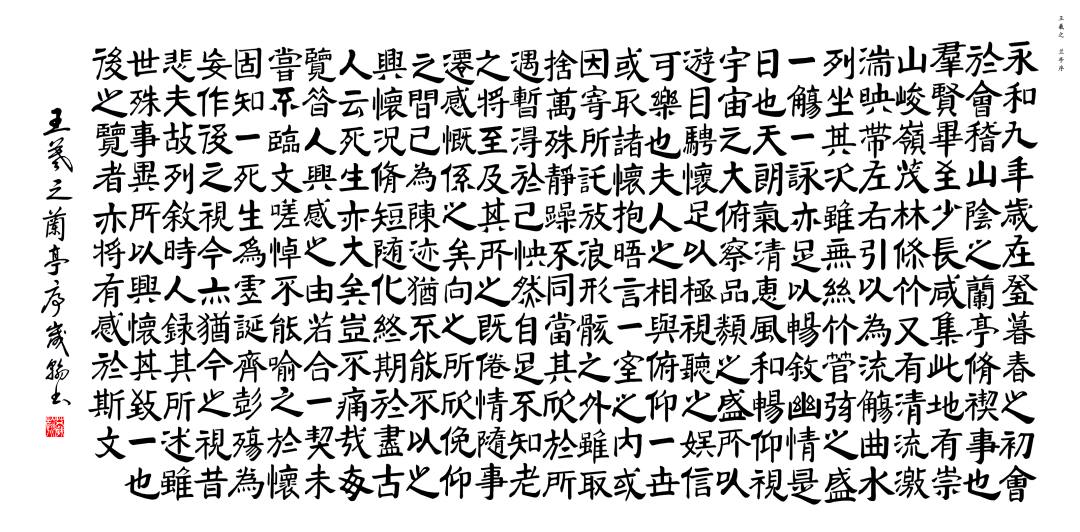 王羲之 兰亭序
永和九年歲在癸暮春之初會
於會稽山陰之蘭亭脩禊事也
羣賢畢至少長咸集此地有崇
山峻嶺茂林脩竹又有清流激
湍映帶左右引以為流觴曲水
列坐其次雖無絲竹管弦之盛
一觴一詠亦足以暢敘幽情是
日也天朗氣清惠風和暢仰視
宇宙之大俯察品類之盛所以
遊目騁懷足以極視聽之娛信
可樂也夫人之相與俯仰一世
或取諸懷抱晤言一室之內或
因寄所託放浪形骸之外雖取
捨萬殊靜躁不同當其欣於所
遇暫得於己怏然自足不知老
之將至及其所之既倦情隨事
遷感慨係之矣向之所欣俛仰
之間已為陳迹猶不能不以之
興懷況脩短隨化終期於盡古
人云死生亦大矣豈不痛哉每
覽昝人興感之由若合一契未
嘗不臨文嗟悼不能喻之於懷
固知一死生為虛誕齊彭殤為
妄作後之視今亦猶今之視昔
悲夫故列敘時人録其所述雖
世殊事異所以興懷其致一也
後之覽者亦將有感於斯文
王羲之蘭亭序歲翰書